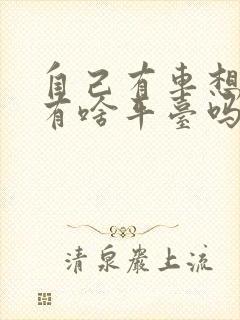 自己有車想
有啥平臺嗎
清泉巖上流